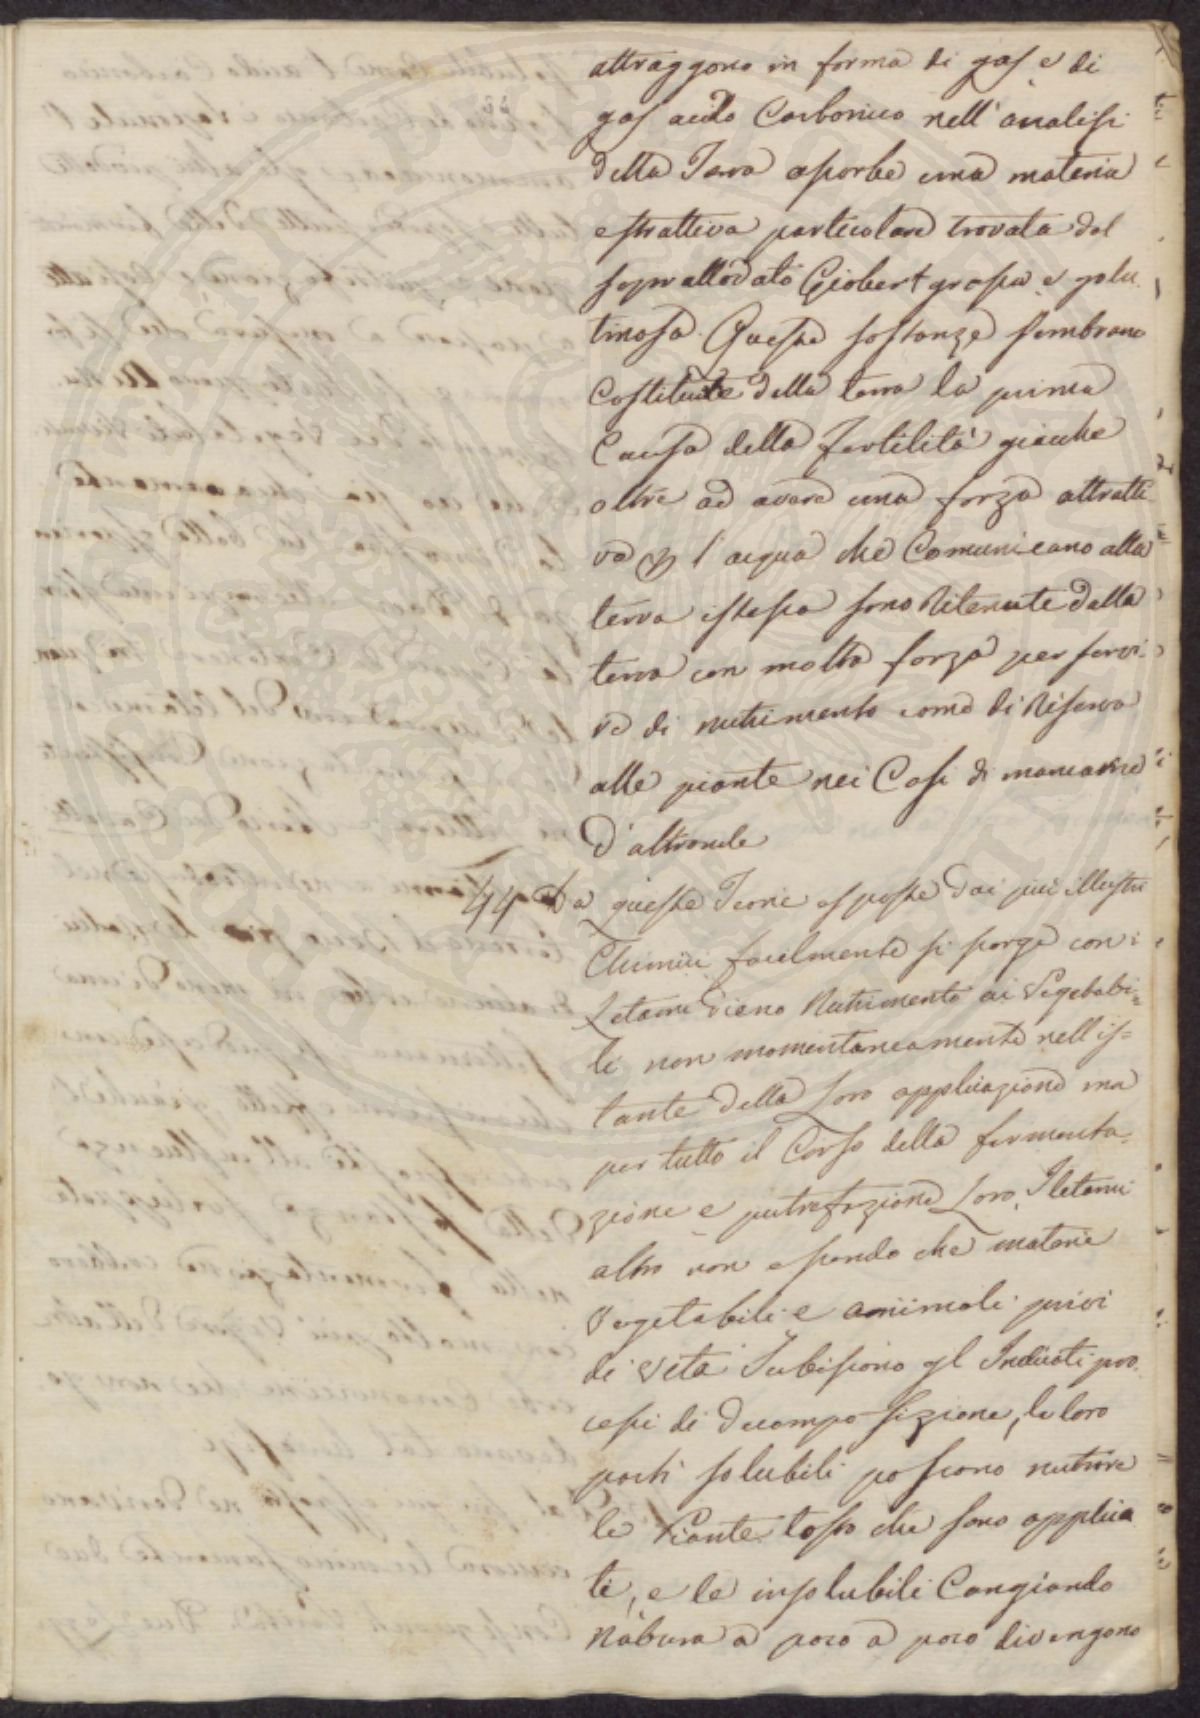 attraggono in forma di gas e di
gas acido Carbonico nell'analisi
della Terra assorbe una materia
estrattiva particolare trovata dal
soprallodato Giobert grassa e glu
tinosa. Queste sostanze sembrano
Costituire della terra la prima
Causa della fertilità giacche
oltre ad avere una forza attratti
va p l'acqua che Comunicano alla
terra istessa sono Ritenute dalla
terra con molta forza per servi
re di nutrimento come di Riserva
alle piante nei Casi di mancanza
d'altronde
44 Da queste Teorie esposte dai piu illustri
Chimici facilmente si scorge con i
Letami dieno Nutrimento ai Vegetabi=
li non momentaneamente nell'is=
tante della Loro applicazione ma
per tutto il Corso della fermenta=
zione e putrefazione Loro. I letami
altro non essendo che materie
Vegetabili e animali privi
di vita Subiscono gl Indicati pro
cessi di decomposizione, le loro
parti solubili possono nutrire
le Piante tosto che sono applica
te, e le insolubili Cangiando
Natura a poco a poco divengono